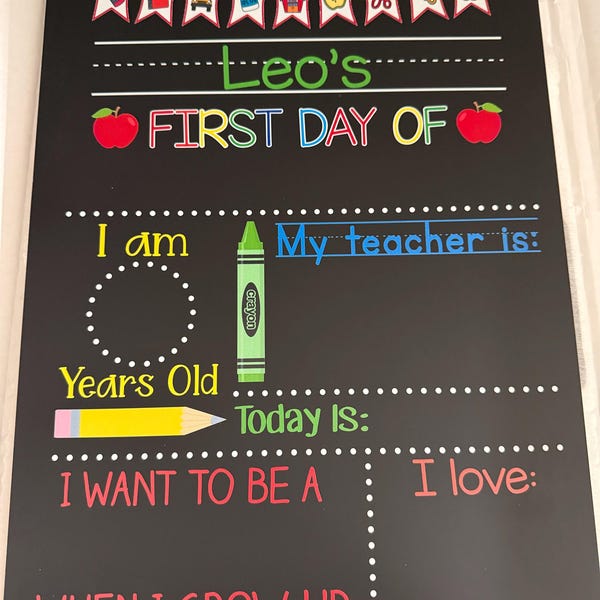 Leo's
FIRST DAY OF
I am
My teacher is:
crayon
Years Old
Today Is:
I WANT TO BE A
I love:
WHEN I GROW UP